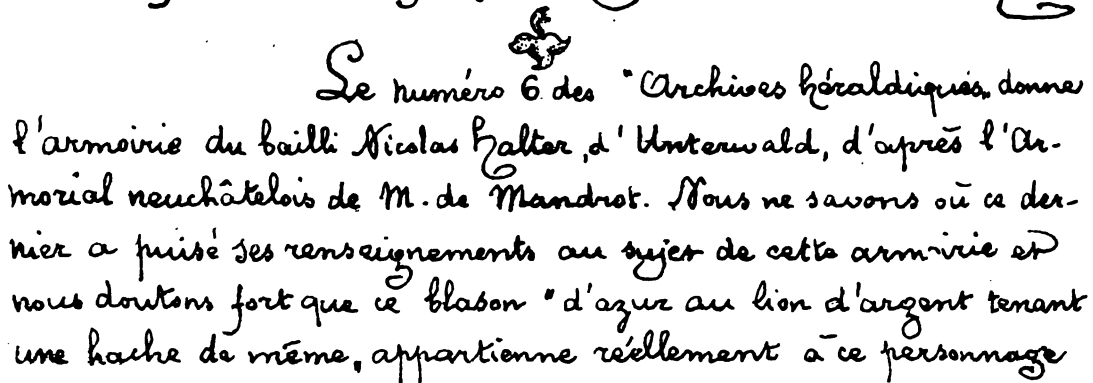 Le numéro 6 des "Archives héraldiques„ donne
l'armoirie du bailli Nicolas Halter, d'Unterwald, d'après l'Ar-
morial neuchâtelois de M. de Mandrot. Nous ne savons où ce der-
nier a puisé ses renseignements au sujet de cette armoirie et
nous doutons fort que ce blason "d'azur au lion d'argent tenant
une hache de même„ appartienne réellement à ce personnage